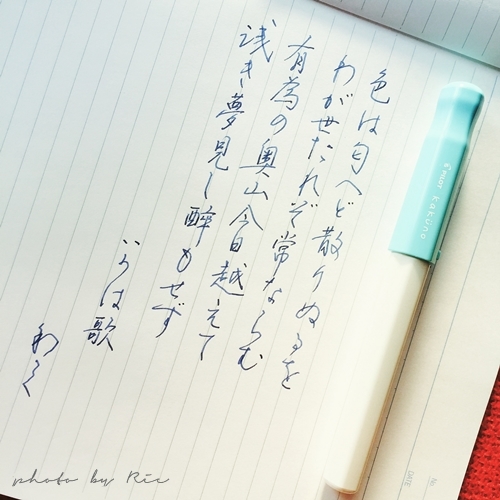 色は匂へど散りぬるを
わが世たれぞ常ならむ
有為の奥山今日越えて
浅き夢見し醉もせず
いろは歌
PILOT kakuno
No.
DATE
photo by Ric